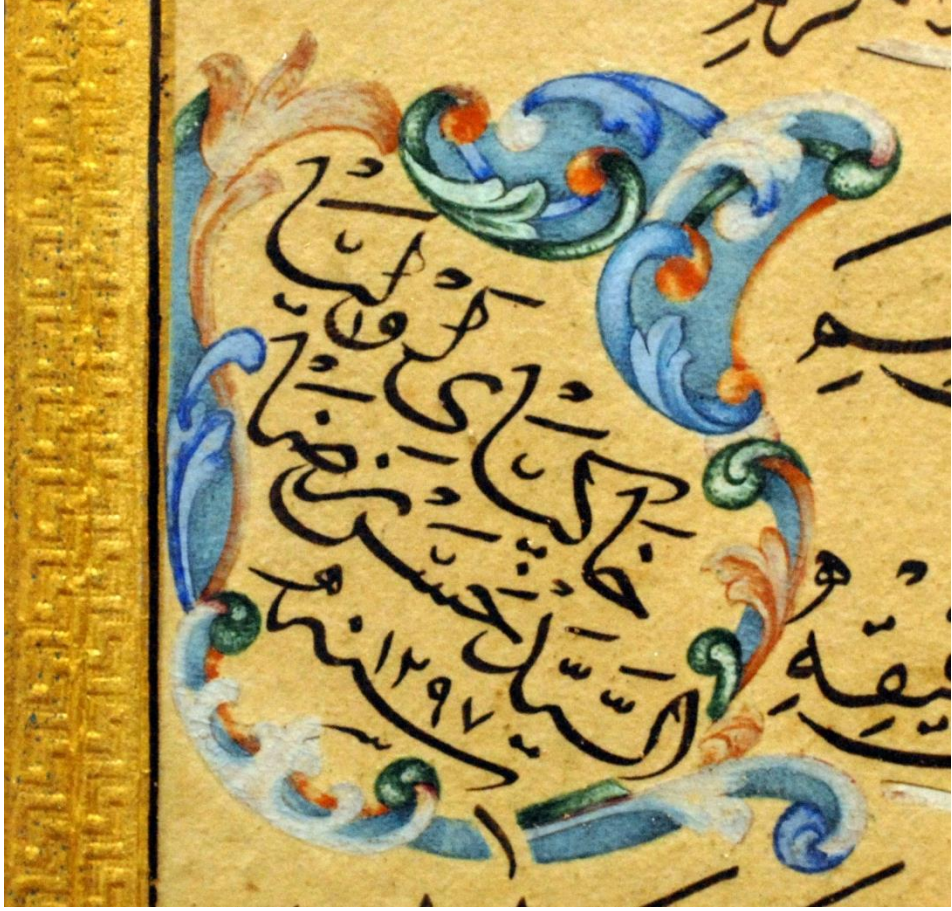 خاكپاى اوليا
السيد حسن رضا
سنه ١٢٩٧